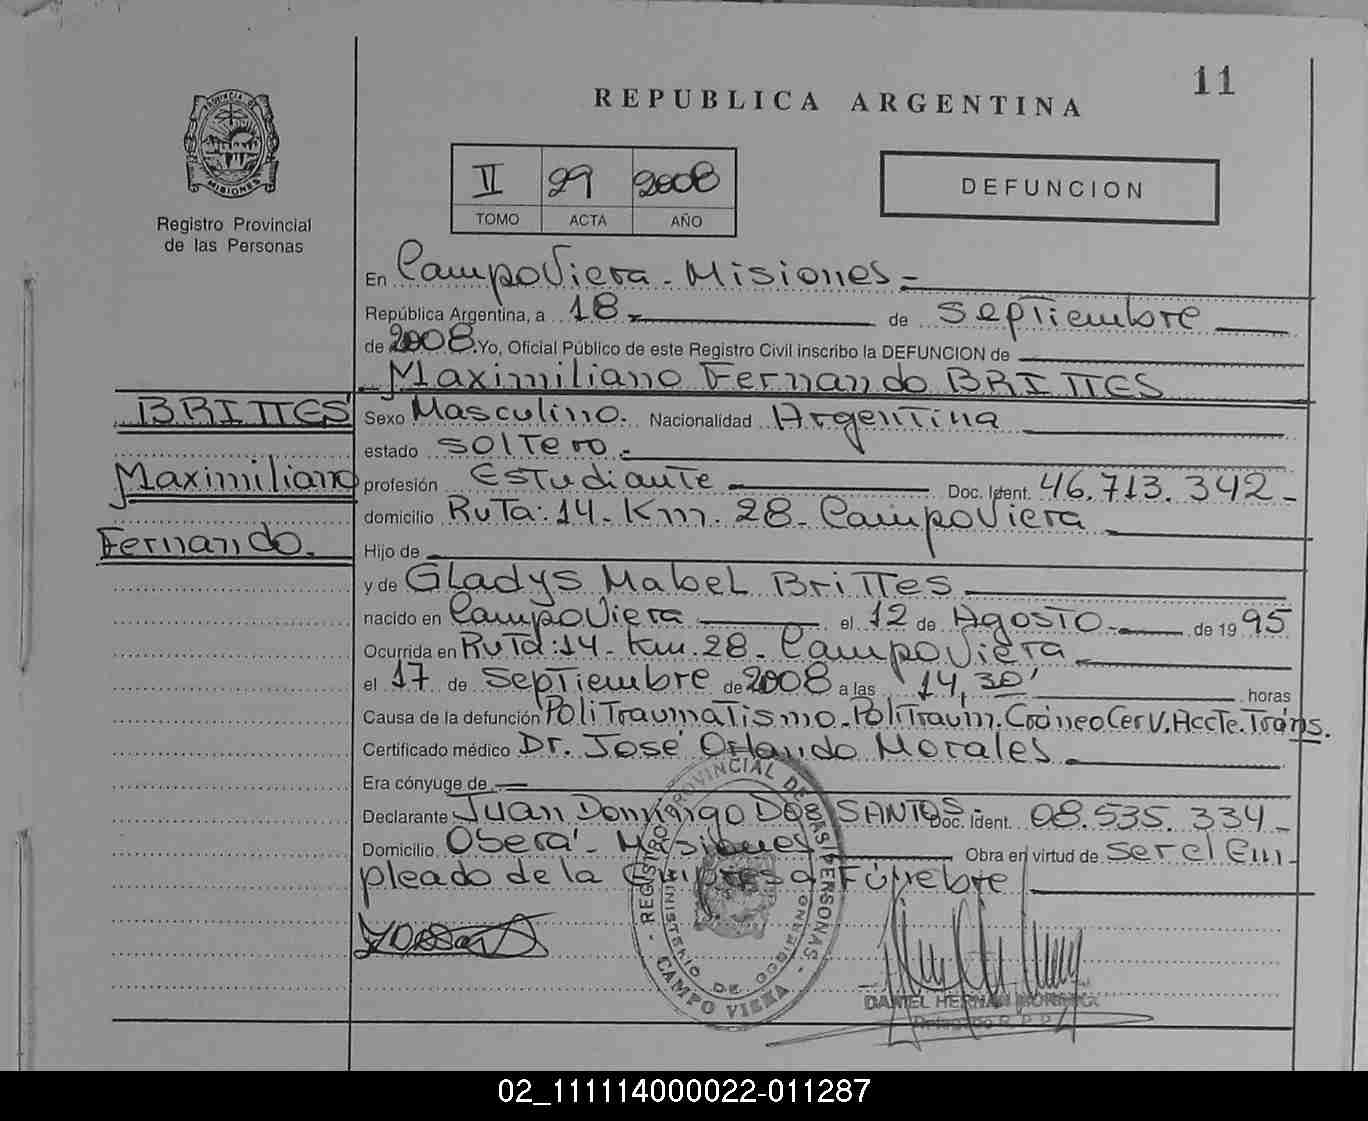 11
REPUBLICA ARGENTINA
PROVINCIA DE
MISIONES
Registro Provincial
de las Personas
II 29 2008
TOMO ACTA AÑO
DEFUNCION
En CampoViera - Misiones -
República Argentina, a 18 - de Septiembre
de 2008. Yo, Oficial Público de este Registro Civil inscribo la DEFUNCION de
Maximiliano Fernando BRITTES
BRITTES
Maximiliano
Fernando.
Sexo Masculino. Nacionalidad Argentina
estado Soltero.-
profesión Estudiante Doc. Ident. 46.713.342-
domicilio Ruta: 14. Km. 28- CampoViera
Hijo de
y de Gladys Mabel Brittes
nacido en CampoViera el 12 de Agosto- de 1995
Ocurrida en Ruta: 14- Km. 28- CampoViera
el 17 de Septiembre de 2008 a las 14,30' horas
Causa de la defunción PoliTraumaTismo-PoliTraum.CráneoCerv.Accte.Tráns.
Certificado médico Dr. José Orlando Morales
Era cónyuge de —
Declarante Juan Domingo DOS SANTOS Doc. Ident. 08.535.334-
Domicilio Oberá - Misiones Obra en virtud de ser el Em-
pleado de la Empresa Fúnebre
REGISTRO PROVINCIAL DE LAS PERSONAS
MINISTERIO DE GOBIERNO
- CAMPO VIERA -
DANIEL HERNAN
Delegado R.P.P.
02_111114000022-011287